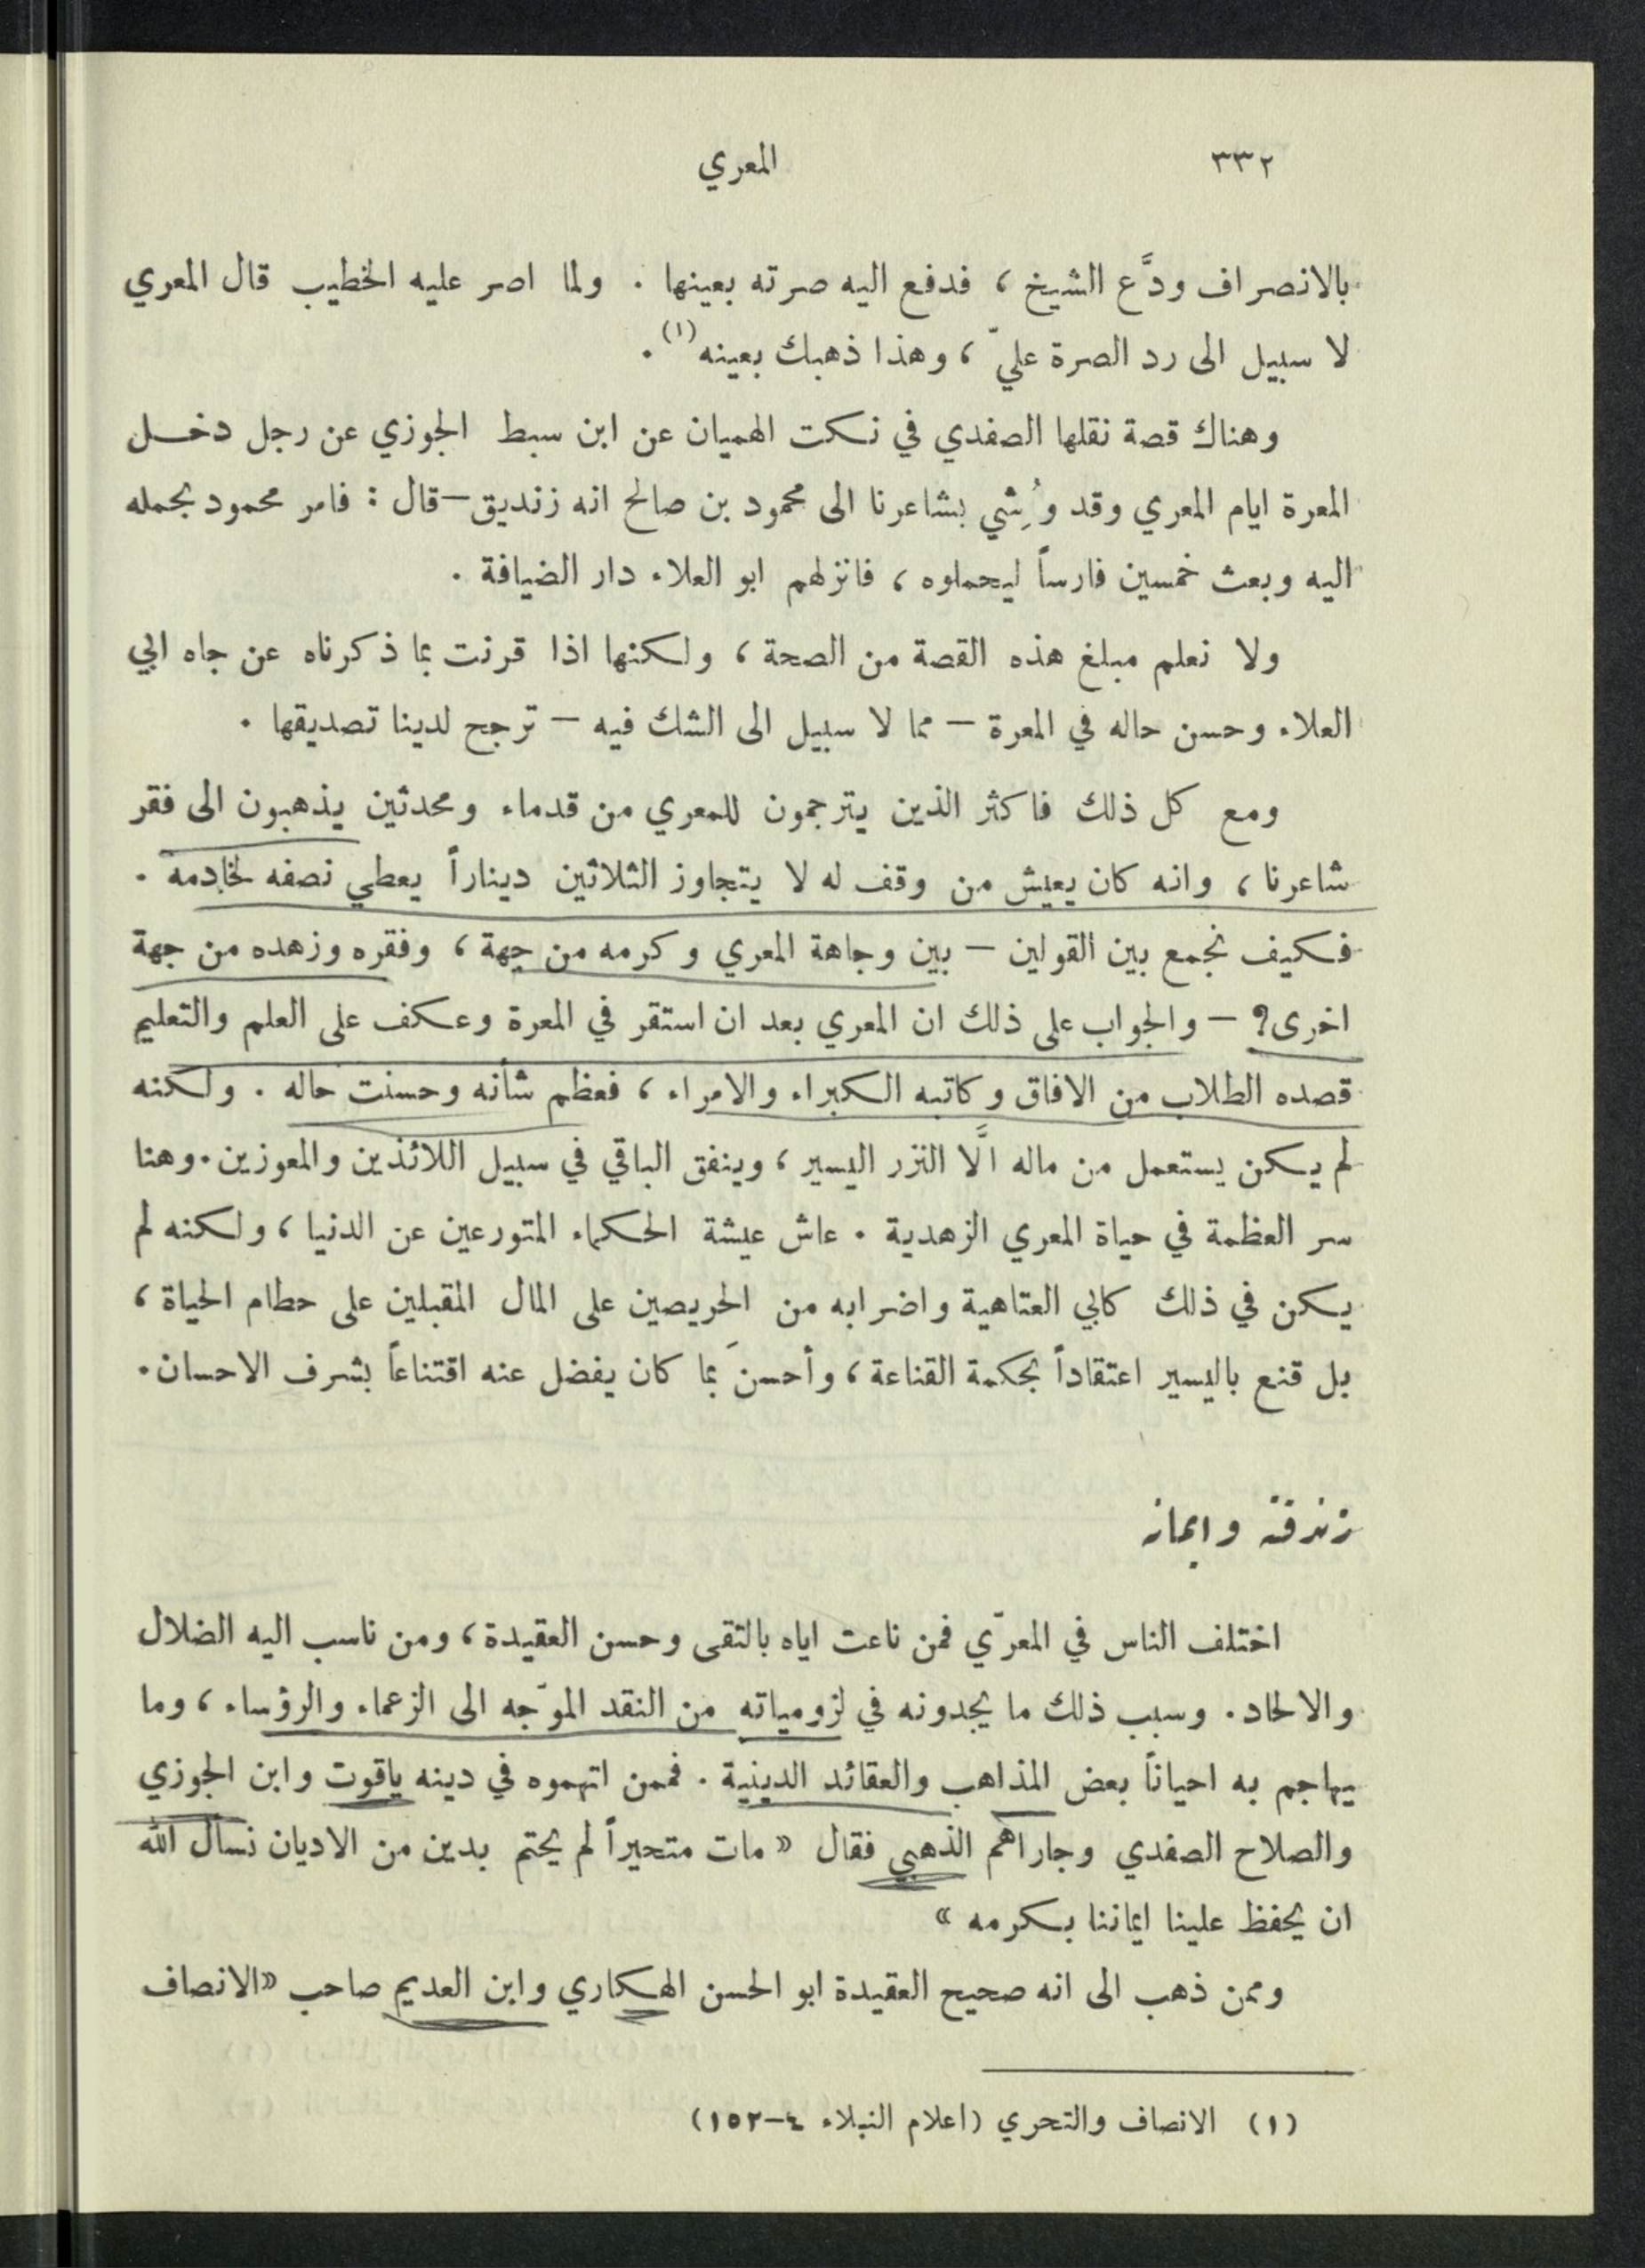 ٣٣٢
المعري
بالانصراف ودَّع الشيخ ، فدفع اليه صرته بعينها . ولما اصر عليه الخطيب قال المعري
لا سبيل الى رد الصرة عليّ ، وهذا ذهبك بعينه (١) .
وهناك قصة نقلها الصفدي في نكت الهميان عن ابن سبط الجوزي عن رجل دخل
المعرة ايام المعري وقد وُشِي بشاعرنا الى محمود بن صالح انه زنديق – قال : فامر محمود بحمله
اليه وبعث خمسين فارساً ليحملوه ، فانزلهم ابو العلاء دار الضيافة .
ولا نعلم مبلغ هذه القصة من الصحة ، ولكنها اذا قرنت بما ذكرناه عن جاه ابي
العلاء وحسن حاله في المعرة – مما لا سبيل الى الشك فيه – ترجح لدينا تصديقها .
ومع كل ذلك فاكثر الذين يترجمون للمعري من قدماء ومحدثين يذهبون الى فقر
شاعرنا ، وانه كان يعيش من وقف له لا يتجاوز الثلاثين ديناراً يعطي نصفه لخادمه .
فكيف نجمع بين القولين – بين وجاهة المعري وكرمه من جهة ، وفقره وزهده من جهة
اخرى؟ – والجواب على ذلك ان المعري بعد ان استقر في المعرة وعكف على العلم والتعليم
قصده الطلاب من الافاق وكاتبه الكبراء والامراء ، فعظم شأنه وحسنت حاله . ولكنه
لم يكن يستعمل من ماله الَّا النزر اليسير ، وينفق الباقي في سبيل اللائذين والمعوزين . وهنا
سر العظمة في حياة المعري الزهدية . عاش عيشة الحكماء المتورعين عن الدنيا ، ولكنه لم
يكن في ذلك كابي العتاهية واضرابه من الحريصين على المال المقبلين على حطام الحياة ،
بل قنع باليسير اعتقاداً بحكمة القناعة ، وأحسنَ بما كان يفضل عنه اقتناعاً بشرف الاحسان .
زندقته وايمانه
اختلف الناس في المعرّي فمن ناعت اياه بالتقى وحسن العقيدة ، ومن ناسب اليه الضلال
والالحاد . وسبب ذلك ما يجدونه في لزومياته من النقد الموّجه الى الزعماء والرؤساء ، وما
يهاجم به احياناً بعض المذاهب والعقائد الدينية . فممن اتهموه في دينه ياقوت وابن الجوزي
والصلاح الصفدي وجاراهم الذهبي فقال « مات متحيراً لم يحتم بدين من الاديان نسأل الله
ان يحفظ علينا ايماننا بكرمه »
وممن ذهب الى انه صحيح العقيدة ابو الحسن الهكاري وابن العديم صاحب « الانصاف
(١) الانصاف والتحري (اعلام النبلاء ٤–١٥٢)